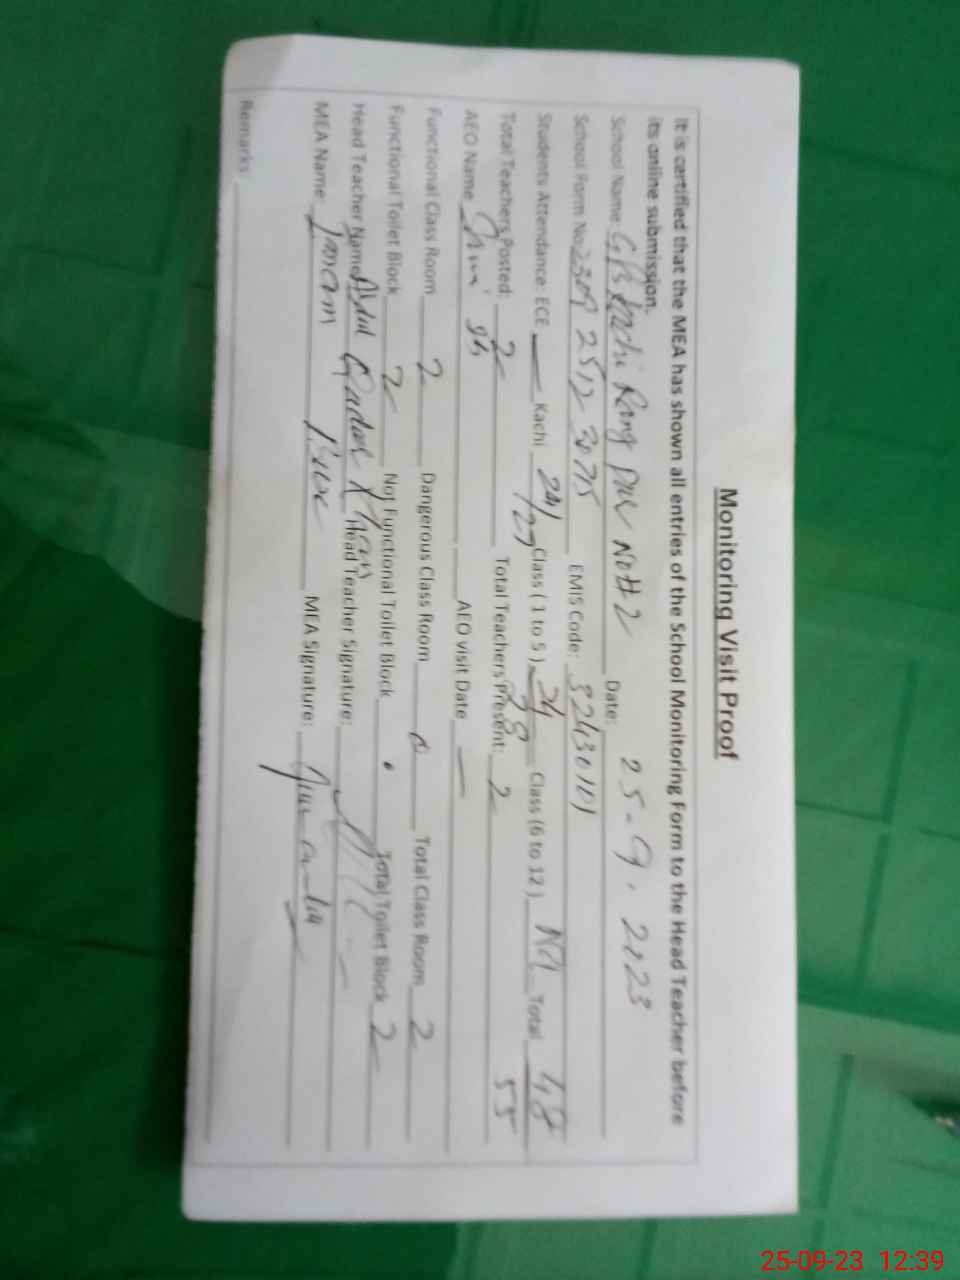 Monitoring Visit Proof
It is certified that the MEA has shown all entries of the School Monitoring Form to the Head Teacher before
its online submission.
School Name: No# 2 Date: 25-9-2023
School Form No: 2309 2512 EMIS Code: 32430101
Students Attendance: ECE — Kachi 24/27 Class ( 1 to 5 ) 24/28 Class (6 to 12 ) NA Total 48
55
Total Teachers Posted: 2 Total Teachers Present: 2
AEO Name AEO visit Date —
Functional Class Room 2 Dangerous Class Room 0 Total Class Room 2
Functional Toilet Block 2 Not Functional Toilet Block Total Toilet Block 2
Head Teacher Name Abdul Khan Head Teacher Signature:
MEA Name: MEA Signature:
Remarks
25-09-23 12:39